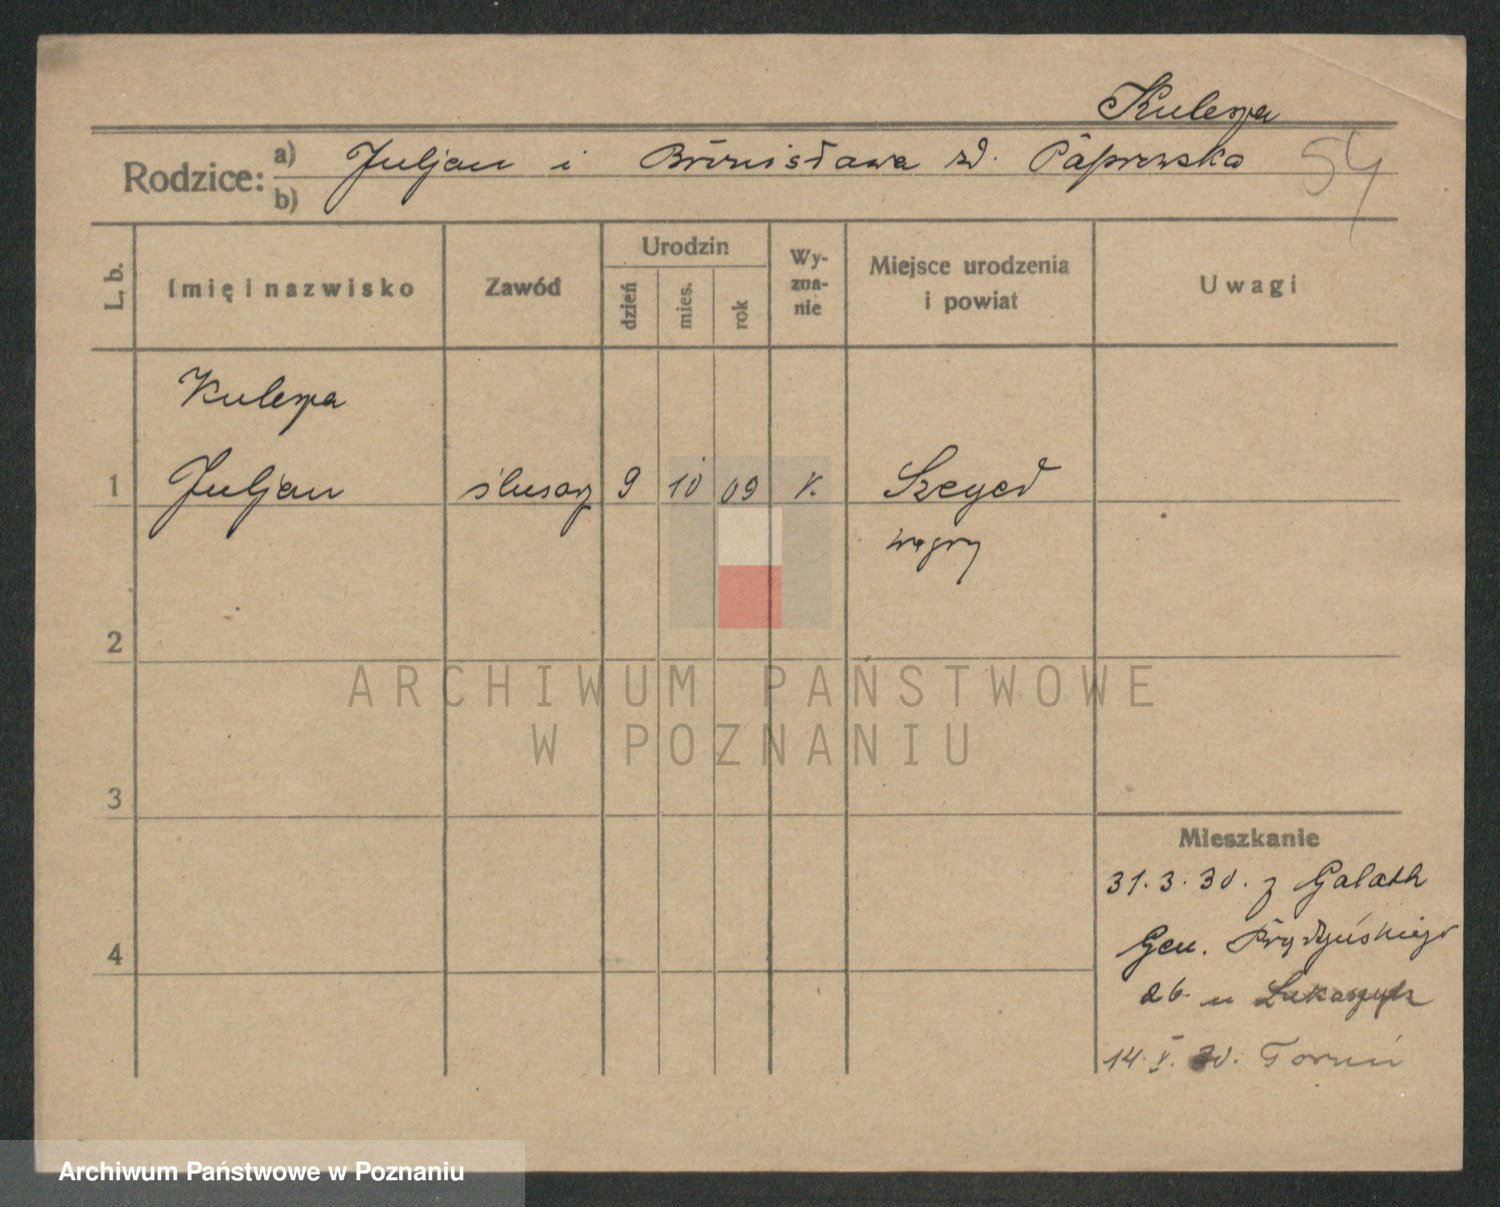 Kulesza
Rodzice: a) b) Juljan i Bronisława zd. Paprowska
54
L. b. Imię i nazwisko Zawód Urodzin dzień mies. rok Wy-zna-nie Miejsce urodzenia i powiat Uwagi
Kulesza
1 Juljan ślusarz 9 10 09 k. Szeged
Węgry
2
ARCHIWUM PAŃSTWOWE
W POZNANIU
3
Mieszkanie
31.3.30. z
4 Gen. Prądzyńskiego
u Łukaszyk
14.V.30. Toruń
Archiwum Państwowe w Poznaniu